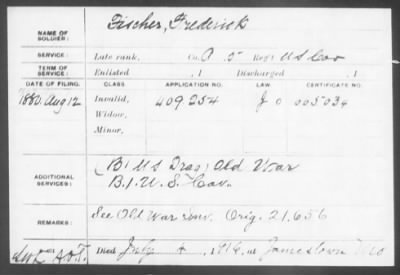 NAME OF SOLDIER: Fischer, Frederick
SERVICE: Late rank, Co. 5 Reg't U S Cav
TERM OF SERVICE: Enlisted , 1 Discharged , 1
DATE OF FILING. CLASS APPLICATION NO. LAW CERTIFICATE NO.
1880, Aug 12 Invalid, 409.254
Widow,
Minor,
ADDITIONAL SERVICES: B, U S Drag; Old War
B. 1. U. S. Cav.
REMARKS: See Old War Inv. Orig. 21.656
Died July 4, 1916, at Jamestown